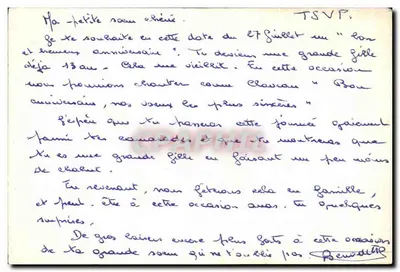 TSVP.
Ma petite sœur chérie.
Je te souhaite en cette date du 27 juillet un "bon
et heureux anniversaire". Tu deviens une grande fille
déjà 13 ans. Cela me vieillit. En cette occasion
nous pourrions chanter comme "Bon
anniversaire, nos vœux les plus sincères"
J'espère que tu passeras cette journée gaiement
parmi tes camarades et que tu montreras que
tu es une grande fille en faisant un peu moins
de chahut.
En revenant, nous fêterons cela en famille,
et peut être à cette occasion auras-tu quelques
surprises.
De gros baisers encore plus forts à cette occasion
de ta grande sœur qui ne t'oublie pas